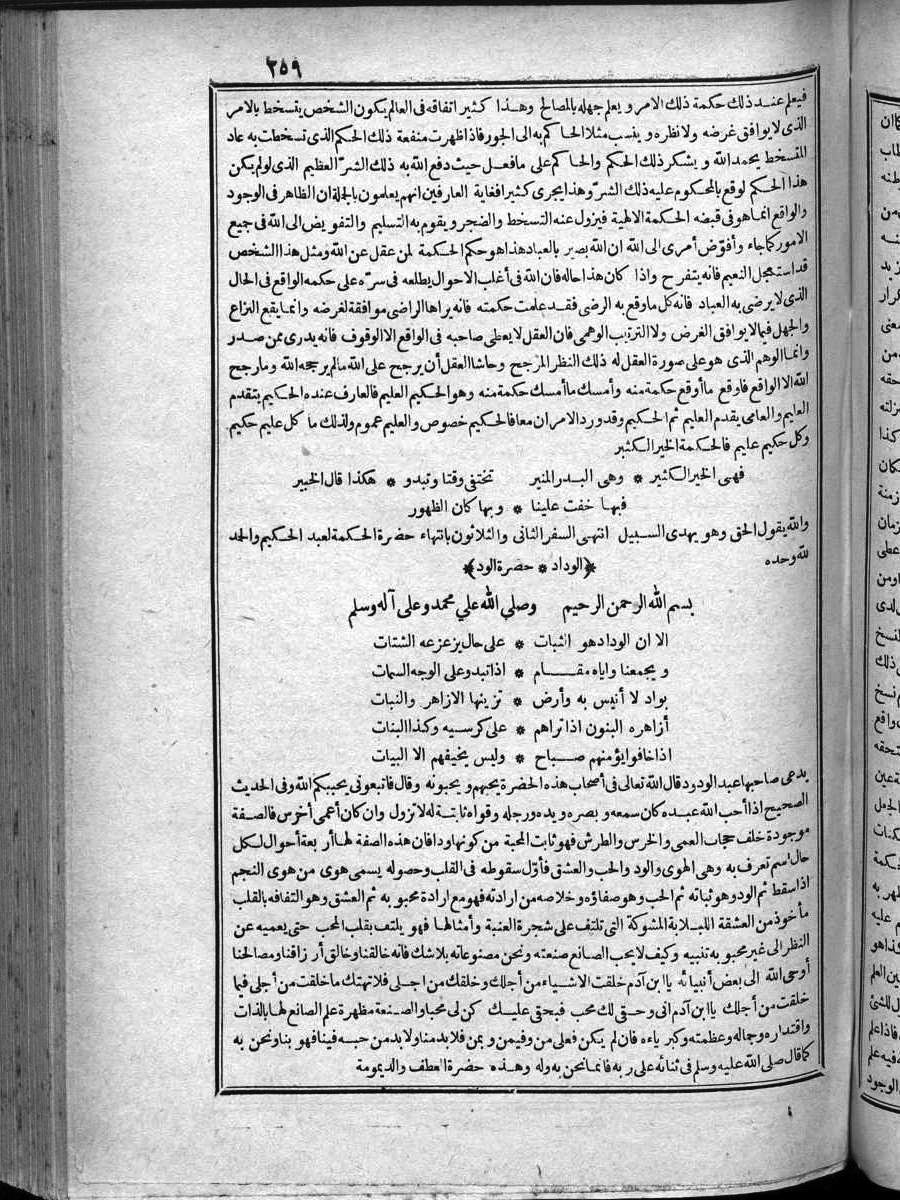 ٢٥٩
فيعلم عند ذلك حكمة ذلك الامر ويعلم جهله بالمصالح وهذا كثير اتفاقه فى العالم يكون الشخص يتسخط بالامر
الذى لا يوافق غرضه ولا نظره وينسب مثلا الحاكم به الى الجور فاذا ظهرت منفعة ذلك الحكم الذى تسخطت به عاد
المتسخط يحمد الله ويشكر ذلك الحكم والحاكم على ما فعل حيث دفع الله به ذلك الشر العظيم الذى لو لم يكن
هذا الحكم لوقع بالمحكوم عليه ذلك الشر وهذا يجرى كثيرا فغاية العارفين انهم يعلمون بالجملة ان الظاهر فى الوجود
والواقع انما هو فى قبضة الحكمة الالهية فيزول عنه التسخط والضجر ويقوم به التسليم والتفويض الى الله فى جميع
الامور كما جاء وأفوّض أمرى الى الله ان الله بصير بالعباد هذا هو حكم الحكمة لمن عقل عن الله ومثل هذا الشخص
قد استعجل النعيم فانه يتفرح واذا كان هذا حاله فان الله فى أغلب الاحوال يطلعه فى سرّه على حكمة الواقع فى الحال
الذى لا يرضى به العباد فانه كل ما وقع به الرضى فقد علمت حكمته فانه يراها الراضى موافقة لغرضه وانما يقع النزاع
والجهل فيما لا يوافق الغرض ولا الترتب الوهمى فان العقل لا يعطى صاحبه فى الواقع الا الوقوف فانه يدرى ممن صدر
وانما الوهم الذى هو على صورة العقل له ذلك النظر المرجح وحاشا العقل أن يرجح على الله مالم يرجحه الله وما رجح
الله الا الواقع فاوقع ما أوقع حكمة منه وأمسك ما أمسك حكمة منه وهو الحكيم العليم فالعارف عنده الحكيم يتقدم
العليم والعامى يقدم العليم ثم الحكيم وقد ورد الامران معا فالحكيم خصوص والعليم عموم ولذلك ما كل عليم حكيم
وكل حكيم عليم فالحكمة الخير الكثير
فهى الخير الكثير * وهى البدر المنير تختفى وقتا وتبدو * هكذا قال الخبير
فبها خفت علينا * وبها كان الظهور
والله يقول الحق وهو يهدى السبيل انتهى السفر الثانى والثلاثون بانتهاء حضرة الحكمة لعبد الحكيم والحمد
لله وحده
﴿الوداد * حضرة الود﴾
بسم الله الرحمن الرحيم وصلى الله على محمد وعلى آله وسلم
الا ان الوداد هو الثبات * على حال يزعزعه الشتات
ويجمعنا واياه مقام * اذا تبدو على الوجه السمات
بواد لا أنيس به وأرض * تزينها الازاهر والنبات
أزاهره البنون اذا تراهم * على كرسيه وكذا البنات
اذا خافوا يؤمنهم صباح * وليس يخيفهم الا البيات
يدعى صاحبها عبد الودود قال الله تعالى فى أصحاب هذه الحضرة يحبهم ويحبونه وقال فاتبعونى يحببكم الله وفى الحديث
الصحيح اذا أحب الله عبده كان سمعه وبصره ويده ورجله وقواه ثابتة له لا تزول وان كان أعمى أخرس فالصفة
موجودة خلف حجاب العمى والخرس والطرش فهو ثابت المحبة من كونها ودا فان هذه الصفة لها أربعة أحوال لكل
حال اسم تعرف به وهى الهوى والود والحب والعشق فأوّل سقوطه فى القلب وحصوله يسمى هوى من هوى النجم
اذا سقط ثم الود وهو ثباته ثم الحب وهو صفاؤه وخلاصه من ارادته فهو مع ارادة محبوبه ثم العشق وهو التفافه بالقلب
مأخوذ من العشقة اللبلابة المشوكة التى تلتف على شجرة العنبة وأمثالها فهو يلتف بقلب المحب حتى يعميه عن
النظر الى غير محبوبه تنبيه وكيف لا يحب الصانع صنعته ونحن مصنوعاته بلاشك فانه خالقنا وخالق أرزاقنا ومصالحنا
أوحى الله الى بعض أنبيائه يا ابن آدم خلقت الاشياء من أجلك وخلقتك من اجلى فلا تهتك ما خلقت من أجلى فيما
خلقت من أجلك يا ابن آدم انى وحقى لك محب فبحقى عليك كن لى محبا والصنعة مظهرة علم الصانع لها بالذات
واقتداره وجماله وعظمته وكبرياءه فان لم يكن فعلى من وفيمن وبمن فلا بد منا ولا بد من حبه فينا فهو بنا ونحن به
كما قال صلى الله عليه وسلم فى ثنائه على ربه فانما نحن به وله وهذه حضرة العطف والديمومة